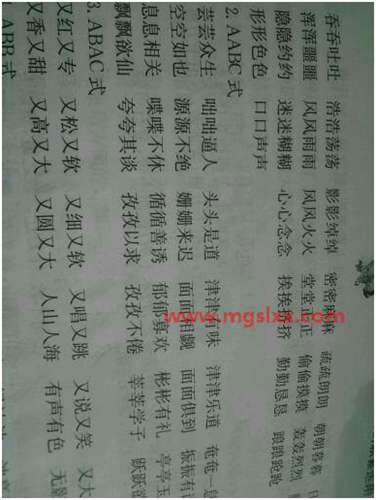 吞吞吐吐 浩浩荡荡 影影绰绰 密密麻麻 疏疏朗朗 朝朝暮暮
浑浑噩噩 风风雨雨 风风火火 堂堂正正 偷偷摸摸 轰轰烈烈
隐隐约约 迷迷糊糊 心心念念 挨挨挤挤 勤勤恳恳 踉踉跄跄
形形色色 口口声声
2. AABC 式
芸芸众生 咄咄逼人 头头是道 津津有味 津津乐道 奄奄一
空空如也 源源不绝 姗姗来迟 面面相觑 面面俱到 振振有
息息相关 喋喋不休 循循善诱 郁郁寡欢 彬彬有礼 亭亭玉
飘飘欲仙 夸夸其谈 孜孜以求 孜孜不倦 莘莘学子 跃跃欲
3. ABAC 式
又红又专 又松又软 又细又软 又唱又跳 又说又笑 又大
又香又甜 又高又大 又圆又大 人山人海 有声有色 无
ABB 式
www.mgslxs.com